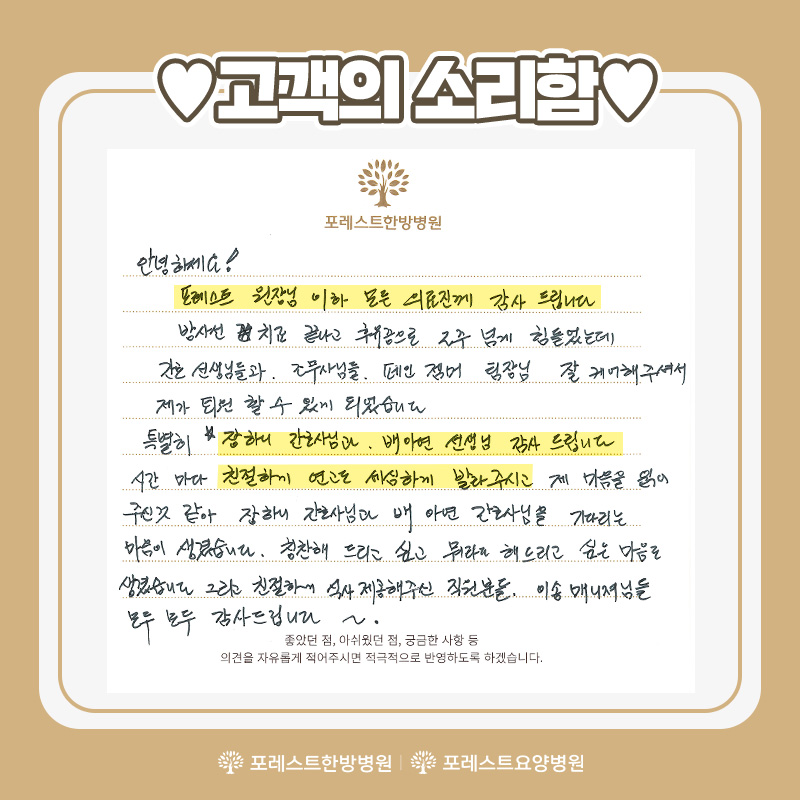 ♥고객의 소리함♥
포레스트한방병원
안녕하세요!
포레스트 원장님 이하 모든 의료진께 감사 드립니다
방사선 치료 끝나고 후유증으로 2주 넘게 힘들었는데
간호 선생님들과, 조무사님들, 페인 잼머 팀장님 잘 케어해주셔서
제가 퇴원 할 수 있게 되었습니다
특별히 * 장하니 간호사님과, 배아연 선생님 감사 드립니다
시간 마다 친절하게 연고도 세심하게 발라주시고 제 마음을 읽어
주신것 같아 장하니 간호사님과 배 아연 간호사님을 기다리는
마음이 생겼습니다. 칭찬해 드리고 싶고 뭐라도 해드리고 싶은 마음도
생겼습니다 그리고 친절하게 식사 제공해주신 직원분들, 이송 매니져님들
모두 모두 감사드립니다 ~.
좋았던 점, 아쉬웠던 점, 궁금한 사항 등
의견을 자유롭게 적어주시면 적극적으로 반영하도록 하겠습니다.
포레스트한방병원 | 포레스트요양병원